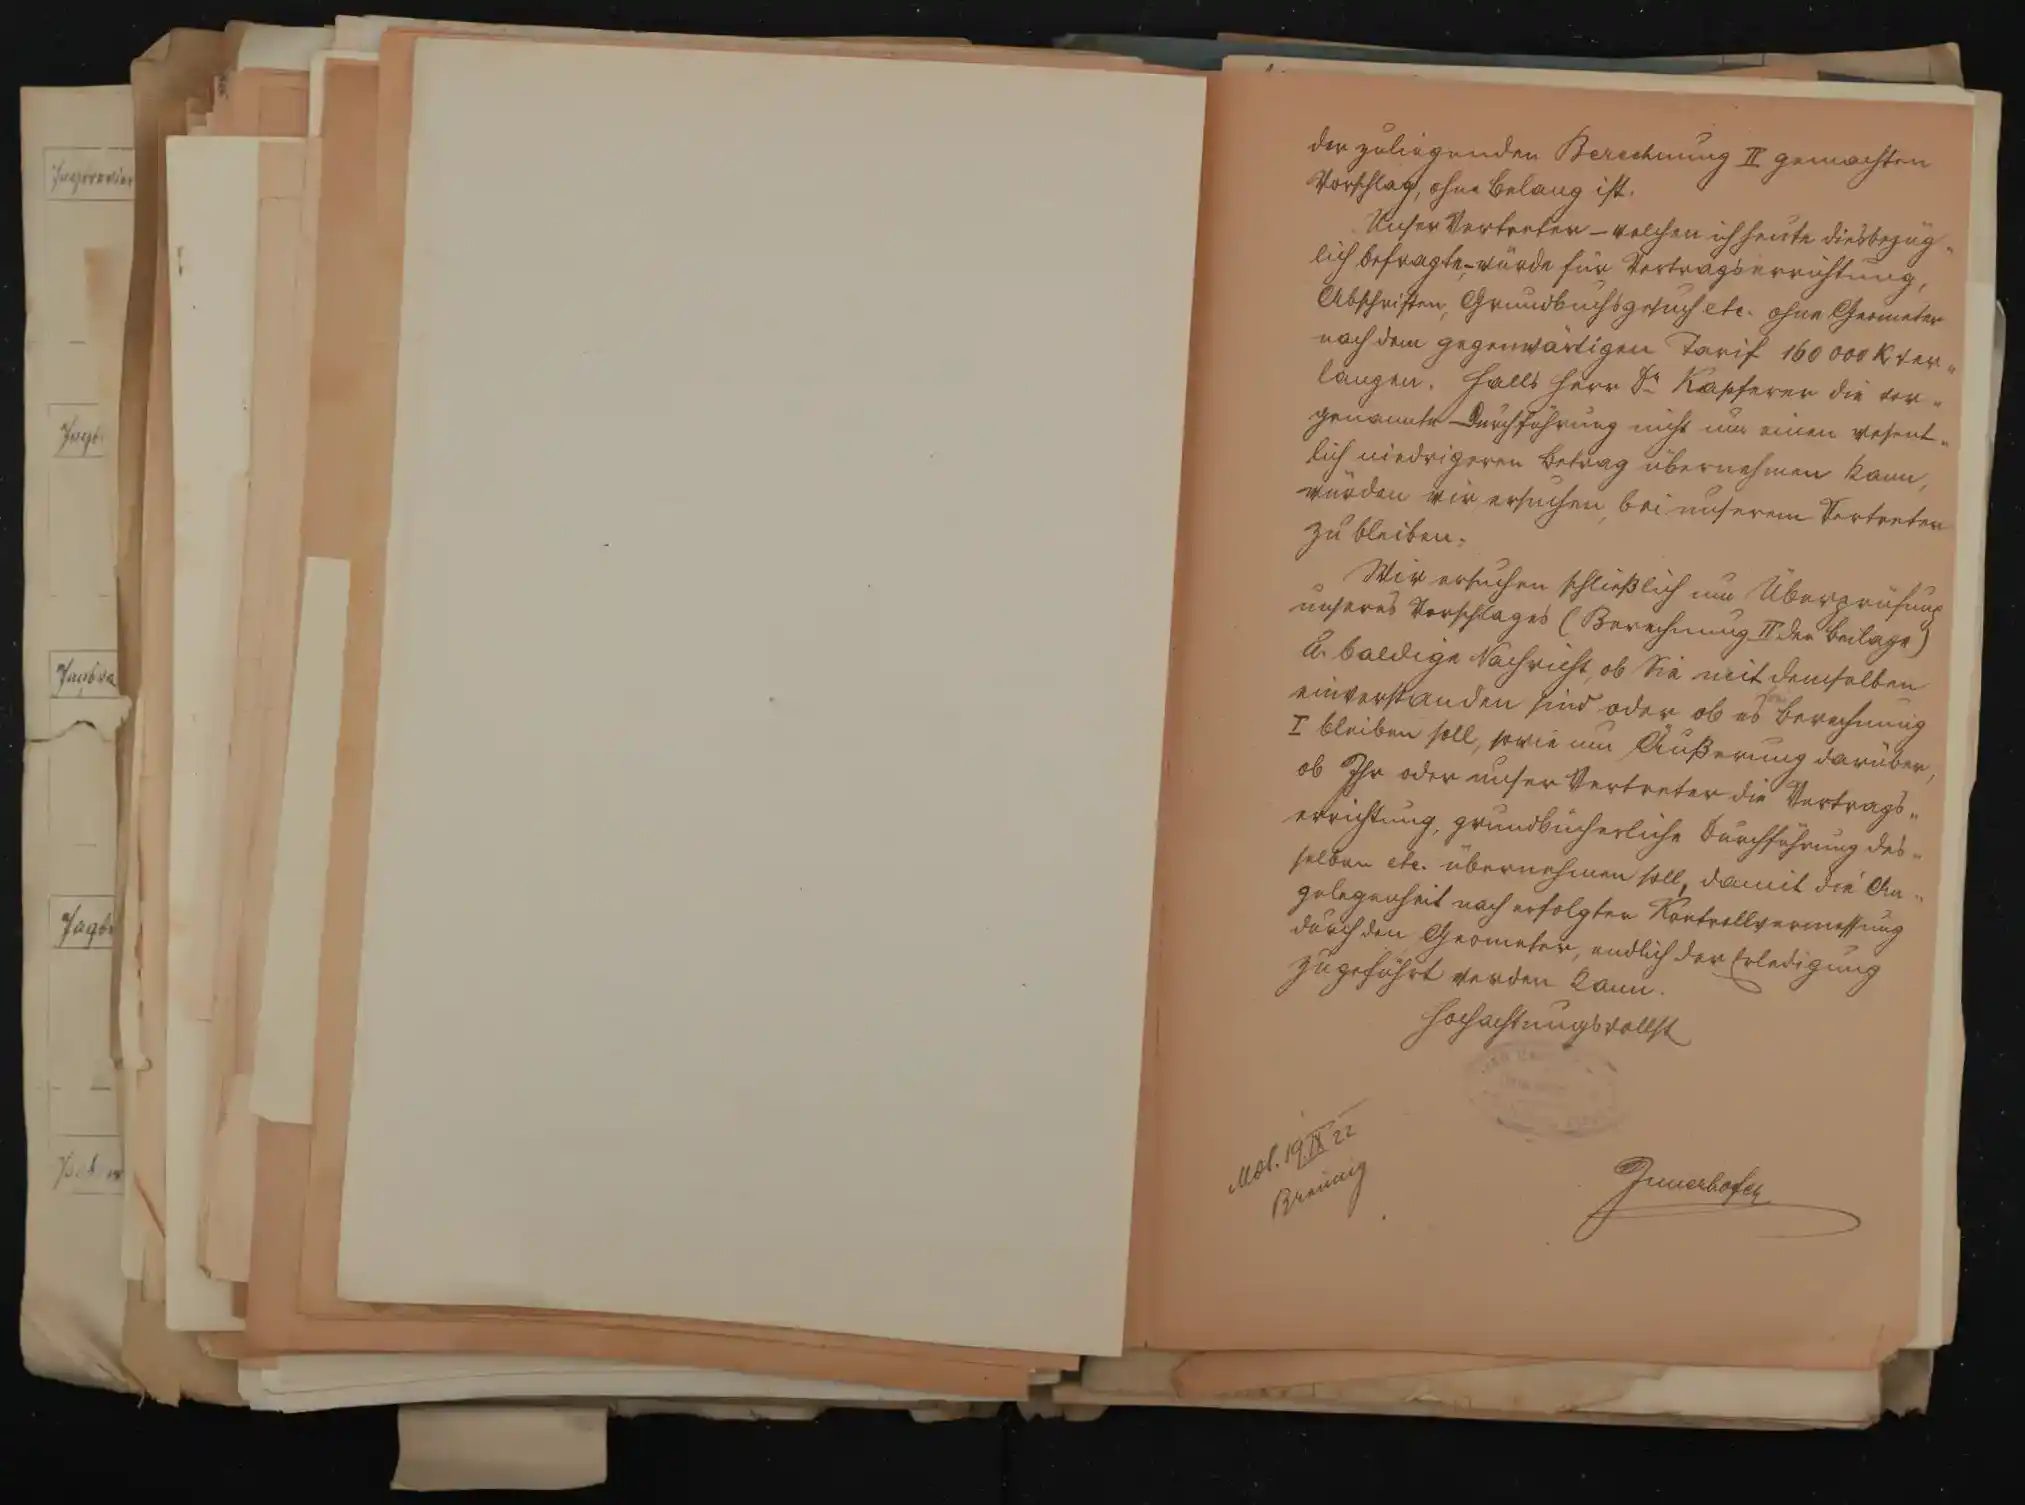 Jagdrevier
Jagd
Jagdre
Jagdr
der zuliegenden Berechnung II gemachten
Vorschlag, ohne Belang ist.
Unser Vertreter – welchen ich heute diesbezüg„
lich befragte – würde für Vertragserrichtung,
Abschriften, Grundbuchsgesuch etc. ohne Geometer
nach dem gegenwärtigen Tarif 160 000 K ver„
langen. Falls Herr Dr. Kapferer die vor„
genannte Durchführung nicht um einen wesent„
lich niedrigeren Betrag übernehmen kann,
würden wir ersuchen, bei unserem Vertreter
zu bleiben.
Wir ersuchen schließlich um Überprüfung
unseres Vorschlages (Berechnung II der Beilage)
u. baldige Nachricht, ob Sie mit demselben
einverstanden sind oder ob es bei Berechnung
I bleiben soll, sowie um Äußerung darüber,
ob Ihr oder unser Vertreter die Vertrags„
errichtung, grundbücherliche Durchführung des„
selben etc. übernehmen soll, damit die An„
gelegenheit nach erfolgter Kontrollvermessung
durch den Geometer, endlich der Erledigung
zugeführt werden kann.
Hochachtungsvollst
19/IX 22
Breunig
Innerhofer